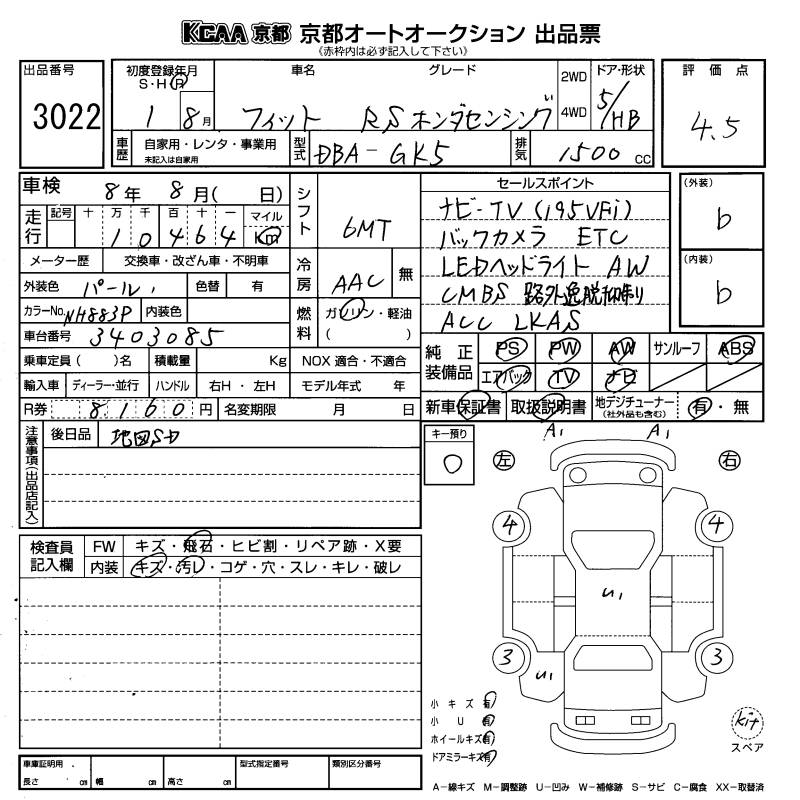 KCAA 京都 京都オートオークション 出品票
(赤枠内は必ず記入して下さい)
出品番号
3022
初度登録年月
S・H・R
1 8月
車名
フィット
グレード
RS ホンダセンシング
2WD
4WD
ドア・形状
5/HB
評価点
4.5
車歴
自家用・レンタ・事業用
未記入は自家用
型式
DBA-GK5
排気
1500 cc
車検 8年 8月( 日)
走行
記号 十 万 千 百 十 一 マイル
1 0 4 6 4 Km
メーター歴 交換車・改ざん車・不明車
外装色 パール 色替 有
カラーNo. NH883P 内装色
車台番号 3403085
乗車定員 ( )名 積載量 Kg
輸入車 ディーラー・並行 ハンドル 右H・左H
R券 8160円 名変期限 月 日
シフト
6MT
冷房
AAC 無
燃料
ガソリン・軽油
( )
NOX 適合・不適合
モデル年式 年
セールスポイント
ナビ-TV(195VFi)
バックカメラ ETC
LEDヘッドライト AW
CMBS 路外逸脱抑制
ACC LKAS
(外装)
b
(内装)
b
純正装備品
PS PW AW サンルーフ ABS
エアバック TV ナビ
新車保証書 取扱説明書 地デジチューナー(社外品も含む) 有・無
注意事項(出品店記入)
後日品 地図SD
キー預り
0
検査員記入欄
FW キズ・飛石・ヒビ割・リペア跡・X要
内装 キズ・汚レ・コゲ・穴・スレ・キレ・破レ
A1 A1
左 右
4 4
U1
3 3
U1
小キズ 有
小U 有
ホイールキズ 有
ドアミラーキズ 有
kit
スペア
車庫証明用
長さ cm 幅 cm 高さ cm
型式指定番号
類別区分番号
A-線キズ M-調整跡 U-凹み W-補修跡 S-サビ C-腐食 XX-取替済